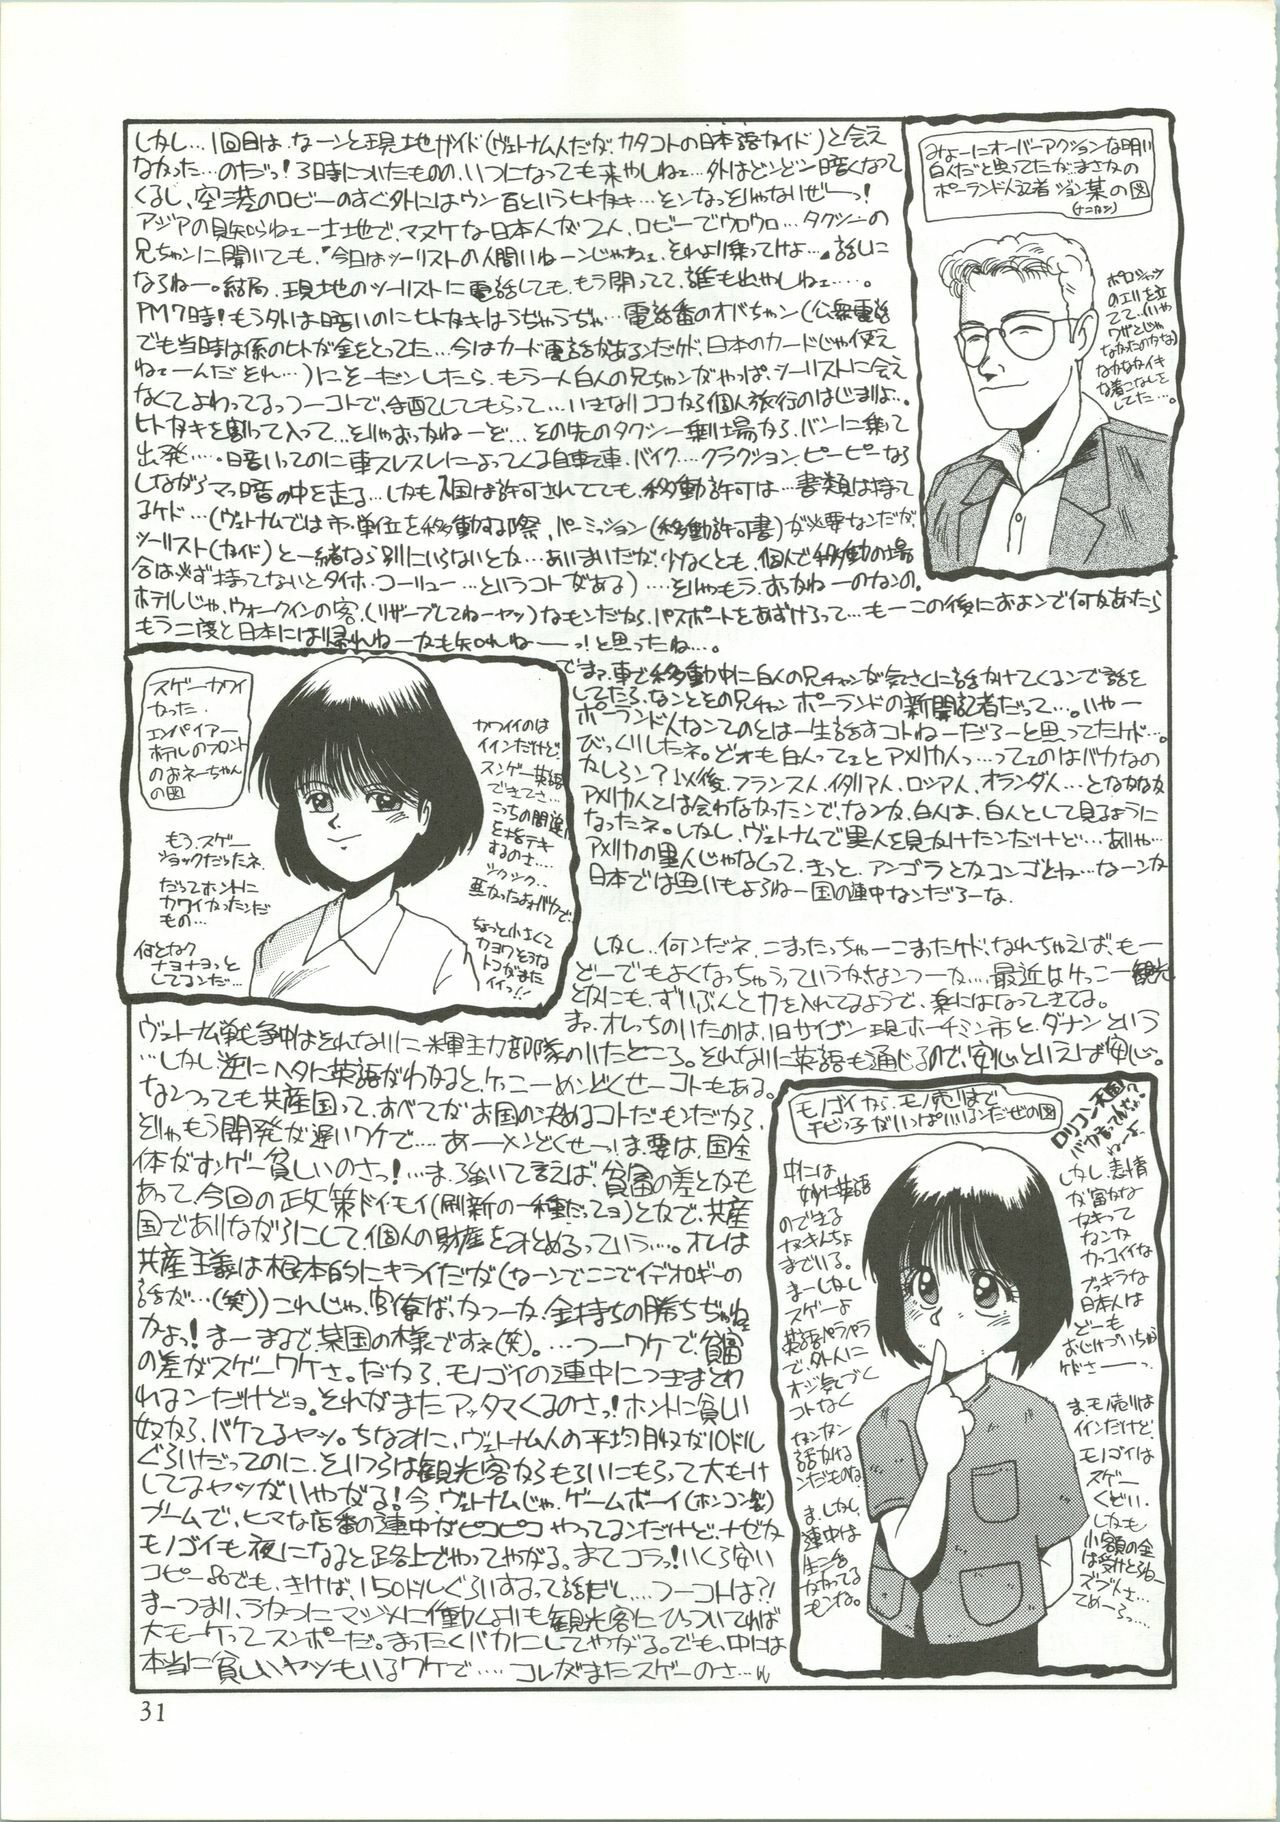 しかし…1回目は、なーンと現地ガイド(ヴェトナム人だが、カタコトの日本語ガイド)と会え
なかった…のだっ!3時についたものの、いつになっても来やしねェ…外はどんどン暗くなって
くるし、空港のロビーのすぐ外にはウン百というヒトガキ…とンなっとじゃないぜーっ!
アジアの見知らねェー土地で、マヌケな日本人が2人、ロビーでウロウロ…タクシーの
兄ちャンに聞いても、「今日はツーリストの人間いねーンじゃねェ、それより乗ってけよ…」話しに
ならねー。結局、現地のツーリストに電話しても、もう閉ってて、誰も出やしねェ…。
PM7時!もう外は暗いのにヒトガキはうぢゃうぢゃ…電話番のオバちャン(公衆電話
でも当時は係のヒトが金をとってた…今はカード電話があるンだケド、日本のカードじゃ使え
ねェーんだそれ…)にそーだンしたら、もう一人白人の兄ちャンがやっぱ、ツーリストに会え
なくてよわってるっつーコトで、手配してもらって…いきなりココから個人旅行のはじまりよ…。
ヒトガキを割って入って…そりゃおっかねーど…その先のタクシー乗り場から、バンに乗って
出発…。暗いってのに車スレスレによってくる自転車・バイク…クラクション、ピーピーなら
しながらマっ暗の中を走る…しかも入国は許可されてても、移動許可は…書類は持って
るケド…(ヴェトナムでは市単位を移動する際、パーミッション(移動許可書)が必要なンだが、
ツーリスト(ガイド)と一緒なら別にいらないとか…あいまいだが、少なくとも、個人で移動の場
合は必ず持ってないとタイホ・コーリュー…というコトがある)…そりゃもう、おっかねーのなンの。
ホテルじゃ、ウォークインの客、(リザーブしてねーヤツ)なもンだから、パスポートをあずけろって…もーこの後におよンで何かあったら
もう二度と日本には帰れねーかも知れねーーっ!と思ったね…。
みょーにオーバーアクションな明い
白人だと思ってたが、まさかの
ポーランド人記者 ジョン某の図
(ナニガシ)
ポロシャツ
のエリを立
てて…(いや
ワザとじゃ
なかったのかな)
なかなかイキ
な着こなしを
してた…。
でまァ、車で移動中に白人の兄チャンが気さくに話かけてくるンで話を
してたら、なンとその兄チャンポーランドの新聞記者だって…。いやー
ポーランド人なンてのとは一生話すコトねーだろーと思ってたけド…。
びっくりしたネ。どォも白人ってェとアメリカ人っ…ってェのはバカなの
かしらン?以後、フランス人、イタリア人、ロシア人、オランダ人…となかなか
アメリカ人とは会わなかったンで、なンか、白人は、白人として見るように
なったネ。しかし、ヴェトナムで黒人を見かけたンだけど…ありゃ…
アメリカの黒人じゃなくって、きっと、アンゴラとかコンゴとね…なーンか
日本では思いもよらねー国の連中なンだろーな。
スゲーカワイ
かった、
エンパイアー
ホテルのフロント
のおネーちゃん
の図
もう、スゲー
ショックだったネ、
だってホントに
カワイかったンだ
もの…
何となく
ナヨナヨっと
してるンだ…
カワイイのは
イインだけど、
スンゲー英語
できてさ…
こっちの間違い
を指テキ
するのさ…
シクシク…
悪かったよォバカで、
ちょっと小さくて
カヨワそうな
トコがまた
イイっ!!
しかし…何ンだネ、こまったっちゃーこまったケド、なれちゃえば、もー
どーでもよくなっちゃうっていうかなンつーか…最近はけっこー観光
とかにも、ずいぶんと力を入れてるようで、楽にはなってきてる。
まァ、オレっちのいたのは、旧サイゴン現ホーチミン市と、ダナンという
ヴェトナム戦争中はそれなりに米軍主力部隊のいたところ。それなりに英語も通じるので、安心といえば安心。
…しかし逆にヘタに英語がわかると、けっこーめンどくせーコトもある。
なンつっても共産国って、すべてがお国の決めるコトだモンだから、
そりゃもう開発が遅いワケで…あーメンどくせーっ!ま、要は、国全
体がすンゲー貧しいのさっ!…ま、強いて言えば、貧富の差とかも
あって、今回の政策ドイモイ(刷新の一種だってョ)とかで、共産
国でありながらにして、個人の財産をみとめるっていう…。オレは
共産主義は根本的にキライだが(なーンでここでイデオロギーの
話が…(笑))これじゃ、官僚ば、かつーか、金持ちの勝ちぢゃねェ
かよっ!まーまるで、某国の様ですネ(笑)。…つーワケで、貧富
の差がスゲーワケさ。だから、モノゴイの連中につきまとわ
れるンだけどョ。それがまたアッタマくるのさっ!ホントに貧しい
奴から、バケてるヤツ。ちなみに、ヴェトナム人の平均月収が10ドル
ぐらいだってのに、そいつらは観光客からもらいにもらって大もーけ
してるヤツがいやがる!今、ヴェトナムじゃ、ゲームボーイ(ホンコン製)
ブームで、ヒマな店番の連中がピコピコやってるンだけど、ナゼか
モノゴイも夜になると路上でやってやがる。まてコラっ!いくら安い
コピー品でも、きけば、150ドルぐらいするって話だし…つーコトは?!
まーつまり、うかつにマジメに働くよりも観光客にひっついてれば
大モーケってスンポーだ。まったくバカにしてやがる。でも、中には
本当に貧しいヤツもいるワケで…コレがまたスゲーのさ…
モノゴイから、モノ売りまで
チビっ子がいっぱいいるンだぜの図
ロリコン天国?
バカ言ってんじゃ
ねーよ、
中には
妙に英語
のできる
ガキんちょ
までいる。
まーしかし
スゲーよ
英語パラパラ
で、外人に
オジ気づく
コトなく
ガンガン
話かける
ンだものね。
ま、しかし、
連中は
生活
かかってる
モンな。
しかし、表情
が豊かな
ガキって
なンか
カッコイイな
ブッキラな
日本人は
どーも
おじけづいちゃう
ケドさーーっ。
ま、モノ売りは
イインだけど、
モノゴイは
スゲー
くどい、
しかも
小額の金
は受けとらねー
ズブとさ…
てめーらっ…
31